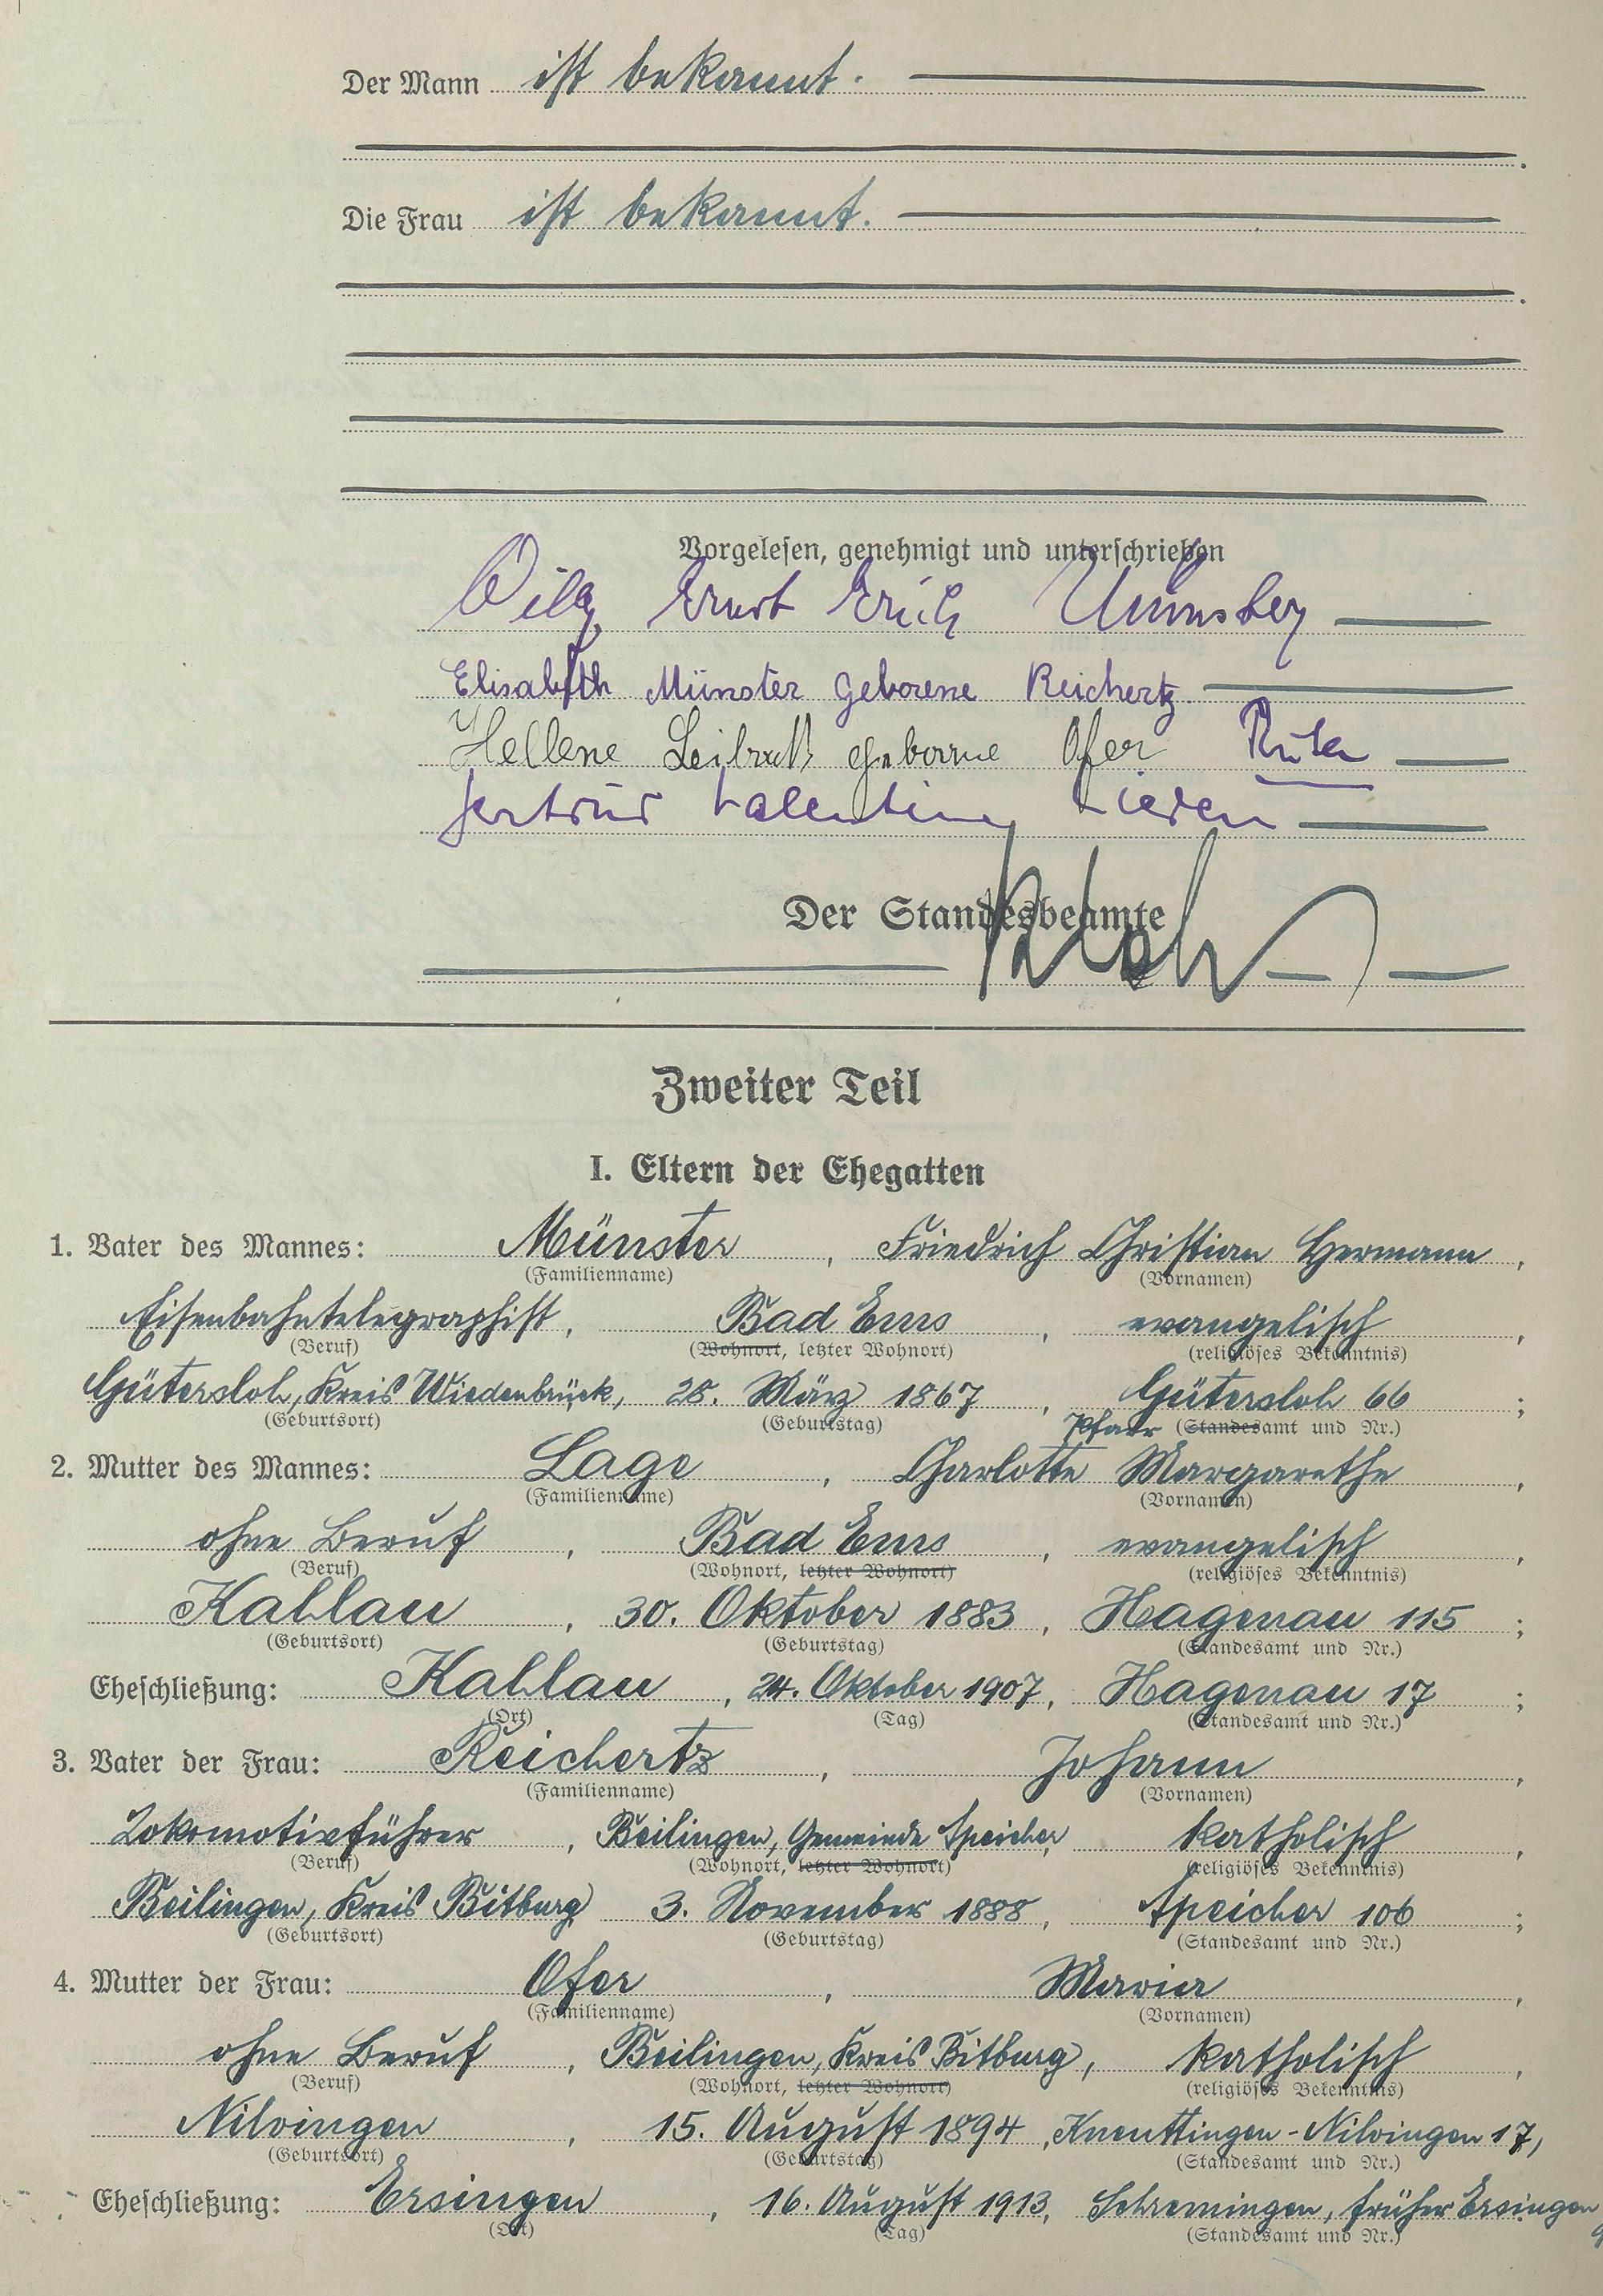 Der Mann ist bekannt.
Die Frau ist bekannt.
Vorgelesen, genehmigt und unterschrieben
Willy Ernst Erich Münster
Elisabeth Münster geborene Reichertz.
Hellene geborne Ofer
Gertrud
Der Standesbeamte
Zweiter Teil
I. Eltern der Ehegatten
1. Vater des Mannes: Münster, Friedrich Christian Hermann,
(Familienname) (Vornamen)
Eisenbahntelegraphist, Bad Ems, evangelisch,
(Beruf) (Wohnort, letzter Wohnort) (religiöses Bekenntnis)
Gütersloh, Kreis Wiedenbrück, 28. März 1867, Gütersloh 66;
(Geburtsort) (Geburtstag) Pfarr (Standesamt und Nr.)
2. Mutter des Mannes: Lage, Charlotte Margarethe,
(Familienname) (Vornamen)
ohne Beruf, Bad Ems, evangelisch,
(Beruf) (Wohnort, letzter Wohnort) (religiöses Bekenntnis)
Kahlau, 30. Oktober 1883, Hagenau 115;
(Geburtsort) (Geburtstag) (Standesamt und Nr.)
Eheschließung: Kahlau, 24. Oktober 1907, Hagenau 17;
(Ort) (Tag) (Standesamt und Nr.)
3. Vater der Frau: Reichertz, Johann,
(Familienname) (Vornamen)
Lokomotivführer, Beilingen, Gemeinde Speicher, katholisch,
(Beruf) (Wohnort, letzter Wohnort) (religiöses Bekenntnis)
Beilingen, Kreis Bitburg 3. November 1888, Speicher 106;
(Geburtsort) (Geburtstag) (Standesamt und Nr.)
4. Mutter der Frau: Ofer, Maria,
(Familienname) (Vornamen)
ohne Beruf, Beilingen, Kreis Bitburg, katholisch,
(Beruf) (Wohnort, letzter Wohnort) (religiöses Bekenntnis)
Nilvingen, 15. August 1894, Kneuttingen-Nilvingen 17,
(Geburtsort) (Geburtstag) (Standesamt und Nr.)
Eheschließung: Ersingen, 16. August 1913, Schremingen, früher Ersingen
(Ort) (Tag) (Standesamt und Nr.)